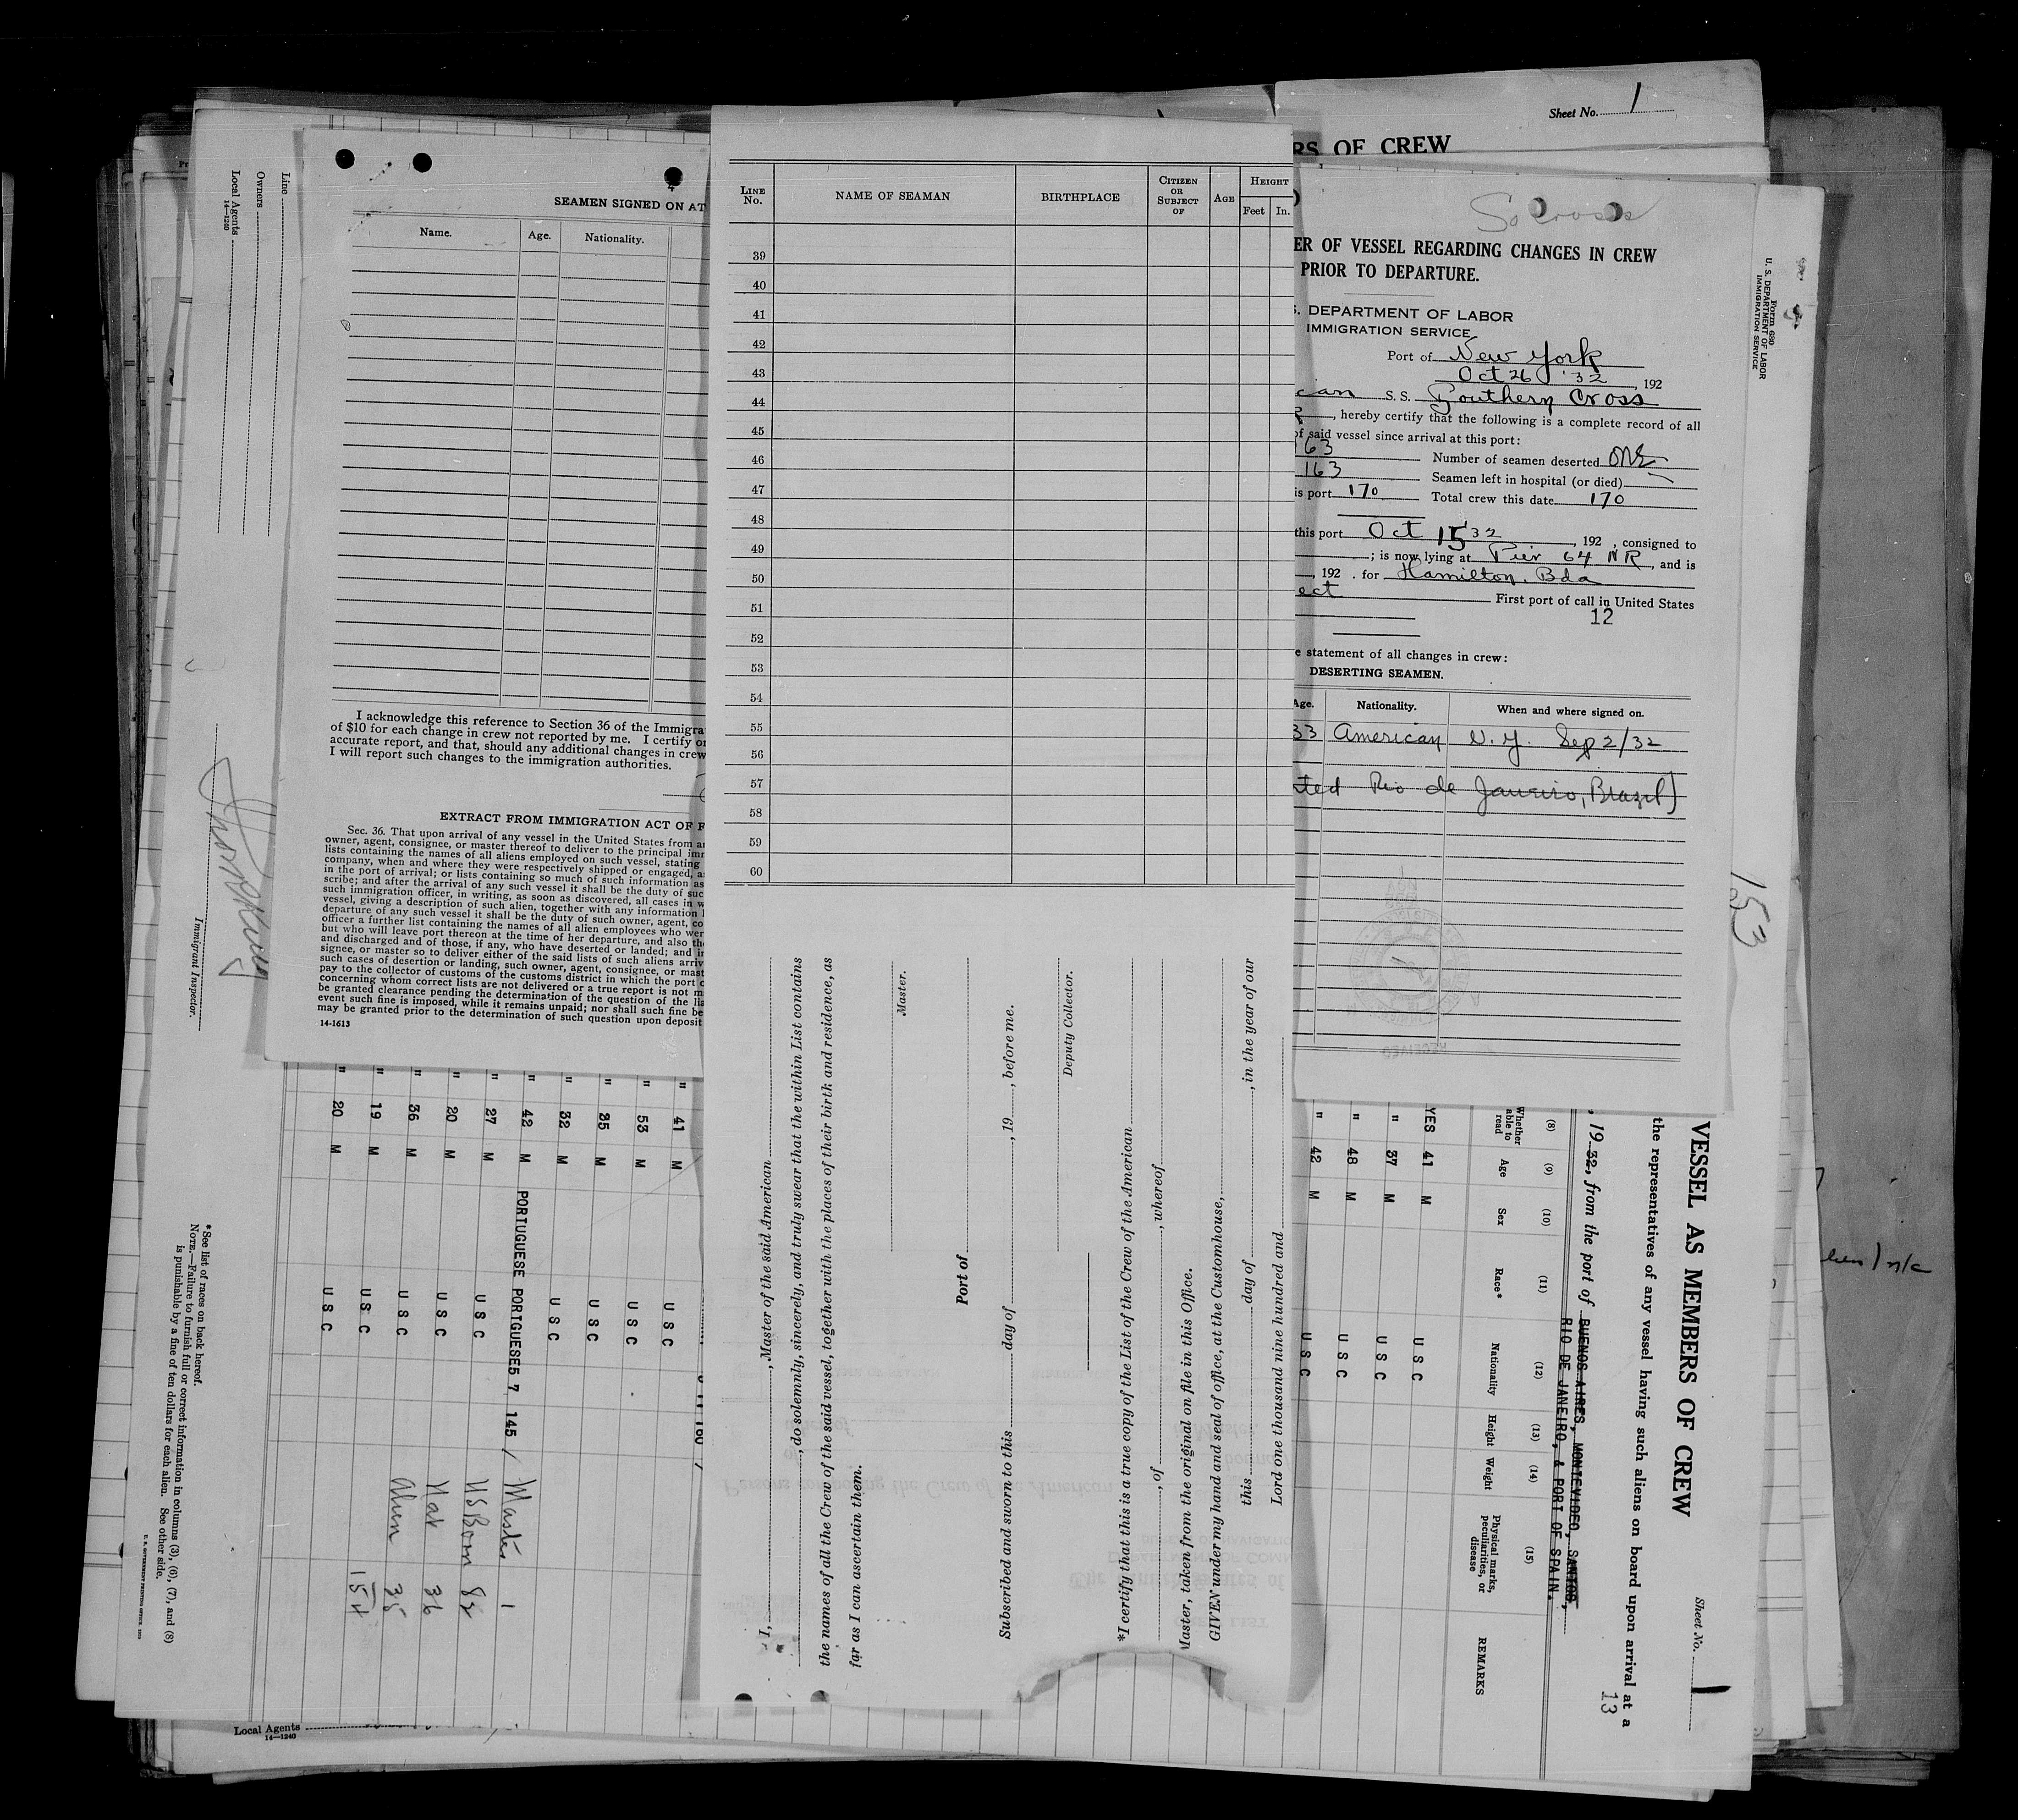 Sheet No. 1
RS OF CREW
Line
Owners
Local Agents
14—1240
SEAMEN SIGNED ON AT
Name. Age. Nationality.
I acknowledge this reference to Section 36 of the Immigra
of $10 for each change in crew not reported by me. I certify
accurate report, and that, should any additional changes in crew
I will report such changes to the immigration authorities.
EXTRACT FROM IMMIGRATION ACT OF F
Sec. 36. That upon arrival of any vessel in the United States from
owner, agent, consignee, or master thereof to deliver to the principal imm
lists containing the names of all aliens employed on such vessel, stating
company, when and where they were respectively shipped or engaged, a
in the port of arrival; or lists containing so much of such information as
scribe; and after the arrival of any such vessel it shall be the duty of suc
such immigration officer, in writing, as soon as discovered, all cases in w
vessel, giving a description of such alien, together with any information
departure of any such vessel it shall be the duty of such owner, agent, co
officer a further list containing the names of all alien employees who wer
but who will leave port thereon at the time of her departure, and also th
and discharged and of those, if any, who have deserted or landed; and in
signee, or master so to deliver either of the said lists of such aliens arriv
such cases of desertion or landing, such owner, agent, consignee, or mast
pay to the collector of customs of the customs district in which the port
concerning whom correct lists are not delivered or a true report is not m
be granted clearance pending the determination of the question of the lia
event such fine is imposed, while it remains unpaid; nor shall such fine be
may be granted prior to the determination of such question upon deposit
14-1613
LINE No. NAME OF SEAMAN BIRTHPLACE CITIZEN OR SUBJECT OF AGE HEIGHT Feet In.
39
40
41
42
43
44
45
46
47
48
49
50
51
52
53
54
55
56
57
58
59
60
I, , Master of the said American
, do solemnly, sincerely, and truly swear that the within List contains
the names of all the Crew of the said vessel, together with the places of their birth and residence, as
far as I can ascertain them.
Master.
Port of
Subscribed and sworn to this day of , 19 , before me.
Deputy Collector.
*I certify that this is a true copy of the List of the Crew of the American
, of , whereof
Master, taken from the original on file in this Office.
GIVEN under my hand and seed of office, at the Customhouse,
this day of , in the year of our
Lord one thousand nine hundred and
So Cross
ER OF VESSEL REGARDING CHANGES IN CREW
PRIOR TO DEPARTURE.
S. DEPARTMENT OF LABOR
IMMIGRATION SERVICE
Port of New York
Oct 26 '32, 192
can S. S. Southern Cross
, hereby certify that the following is a complete record of all
of said vessel since arrival at this port:
163 Number of seamen deserted one
163 Seamen left in hospital (or died)
is port 170 Total crew this date 170
this port Oct 15 '32, 192 , consigned to
; is now lying at Pier 64 NR, and is
, 192 . for Hamilton, Bda
ect First port of call in United States
12
e statement of all changes in crew:
DESERTING SEAMEN.
Age. Nationality. When and where signed on.
33 American N.Y. Sep 2/32
ted Rio de Janeiro, Brazil)
RECEIVED
Form 680
U. S. DEPARTMENT OF LABOR
IMMIGRATION SERVICE
153
VESSEL AS MEMBERS OF CREW
Sheet No. 1
the representatives of any vessel having such aliens on board upon arrival at a
13
, 19 32, from the port of BUENOS AIRES, MONTEVIDEO, SANTOS,
RIO DE JANEIRO, & PORT OF SPAIN.
(8) (9) (10) (11) (12) (13) (14) (15)
Whether able to read Age Sex Race* Nationality Height Weight Physical marks, peculiarities, or disease REMARKS
YES 41 M U S C
" 37 M U S C
" 48 M U S C
" 42 M U S C
" 41 M U S C
" 53 M U S C
" 35 M U S C
" 32 M U S C
" 42 M PORTUGUESE PORTIGUESE5 7 145 /
" 27 M U S C
" 20 M U S C
" 36 M U S C
" 19 M U S C
" 20 M U S C
Master 1
US Born 82
Nat 36
Alien 35
154
Immigrant Inspector.
*See list of races on back hereof.
NOTE.—Failure to furnish full or correct information in columns (3), (6), (7), and (8)
is punishable by a fine of ten dollars for each alien. See other side.
Local Agents
14—1240